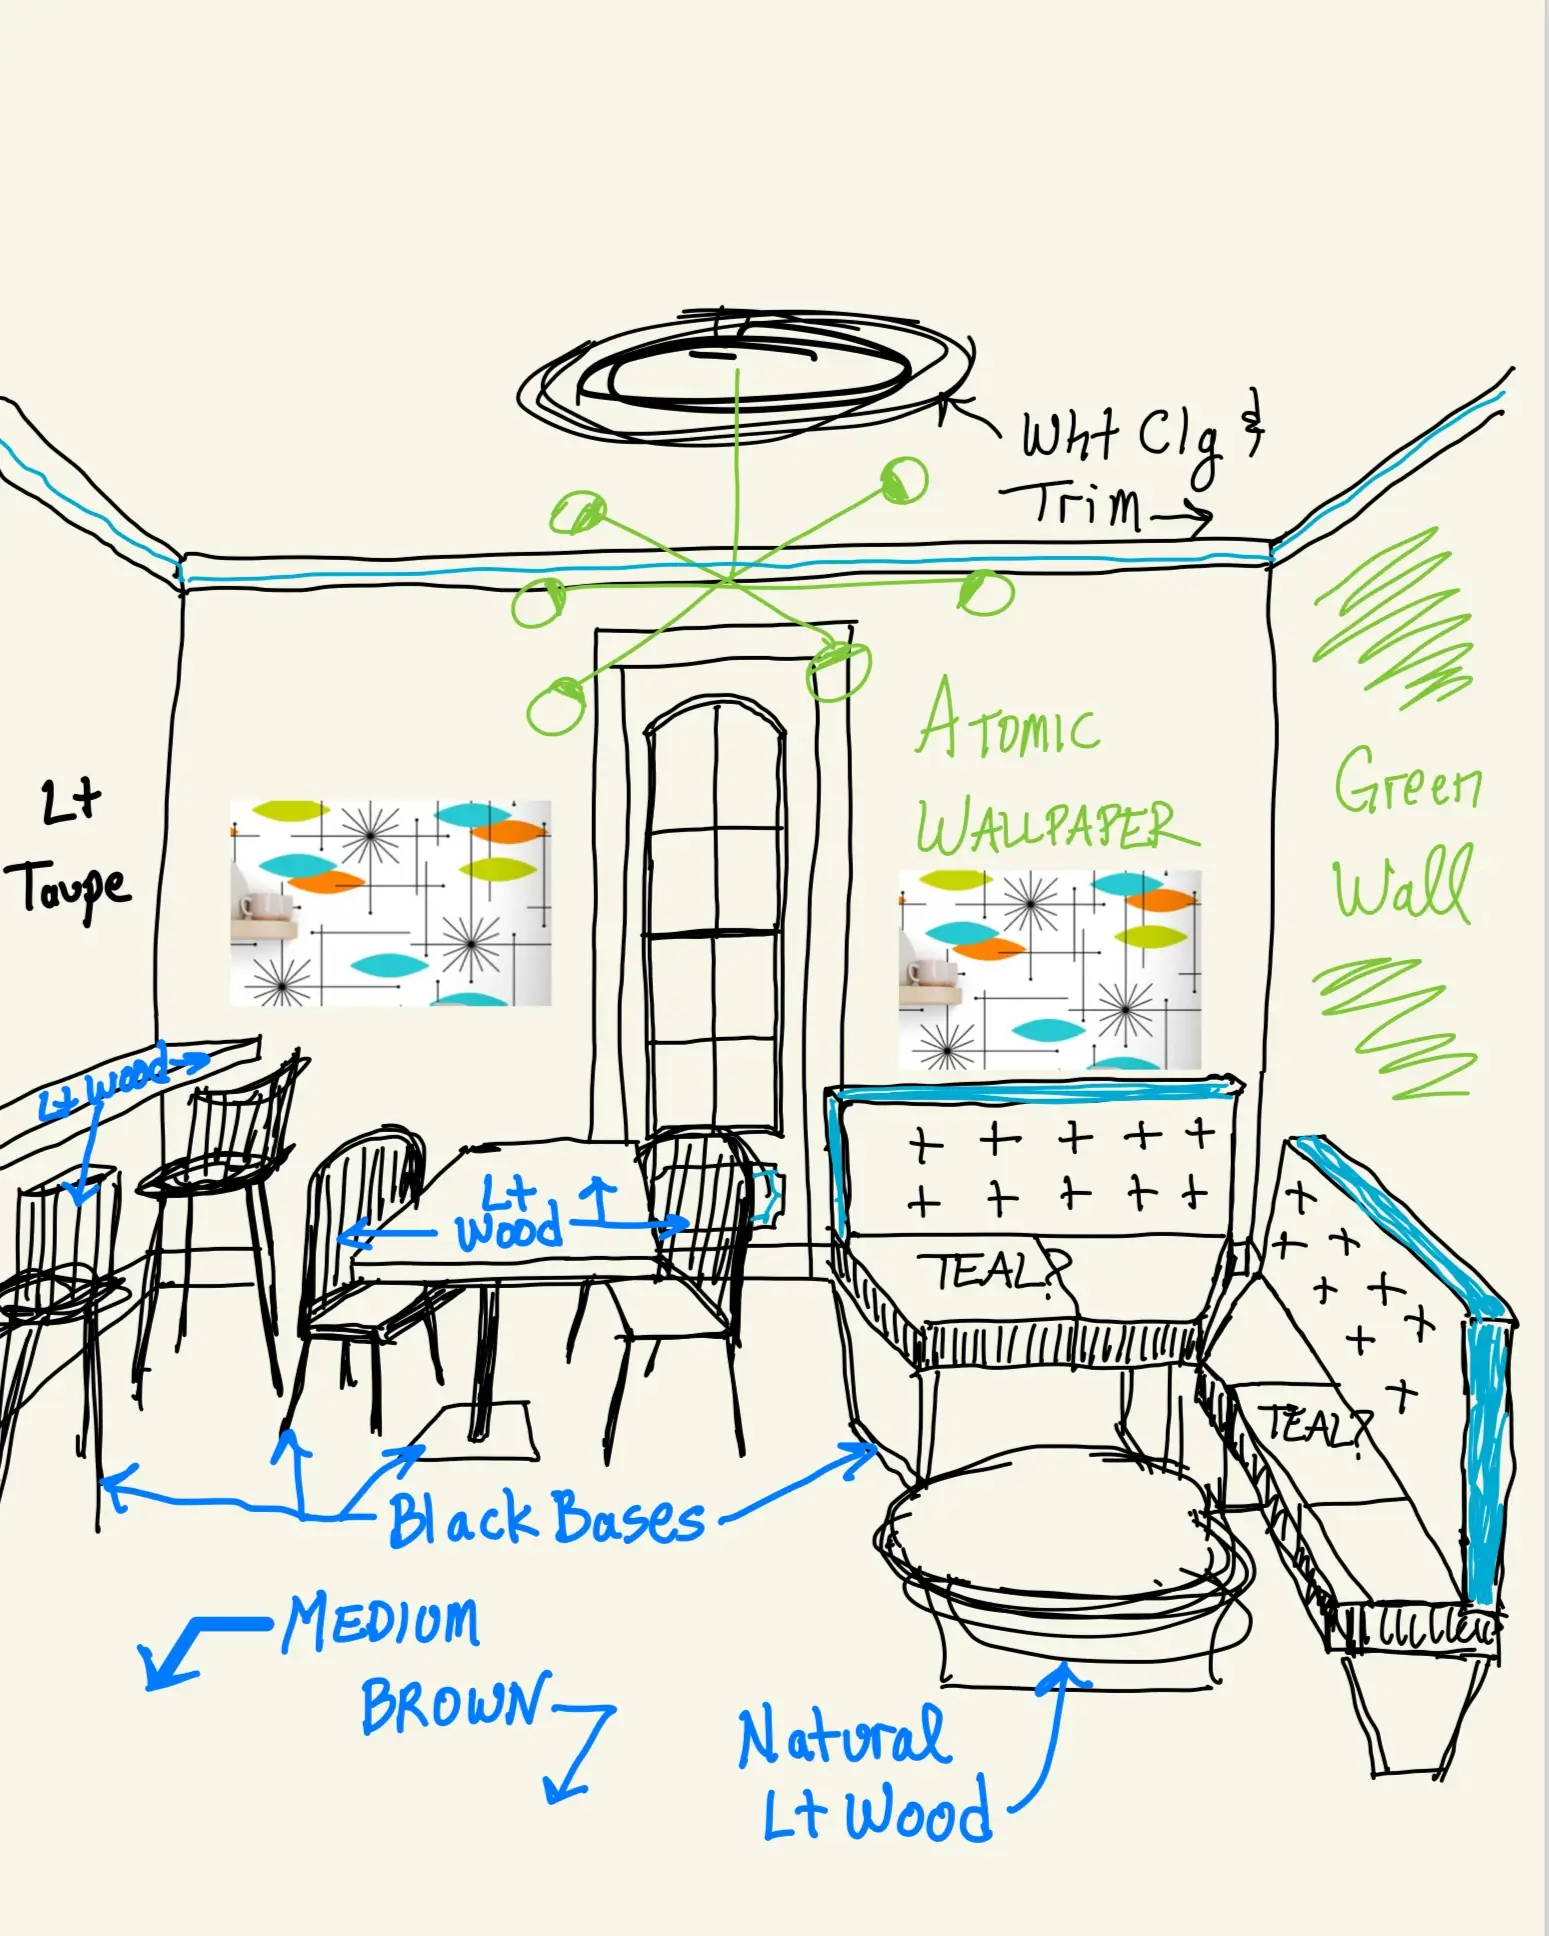 Wht Clg &
Trim
Atomic
Wallpaper
Green
Wall
Lt
Taupe
Lt Wood
Lt
Wood
TEAL?
TEAL?
Black Bases
MEDIUM
BROWN
Natural
Lt Wood